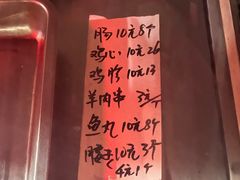 肠10元8个
鸡心10元26
鸡胗10元13
羊肉串3元/个
鱼丸10元8个
腰子10元3个
4元1个